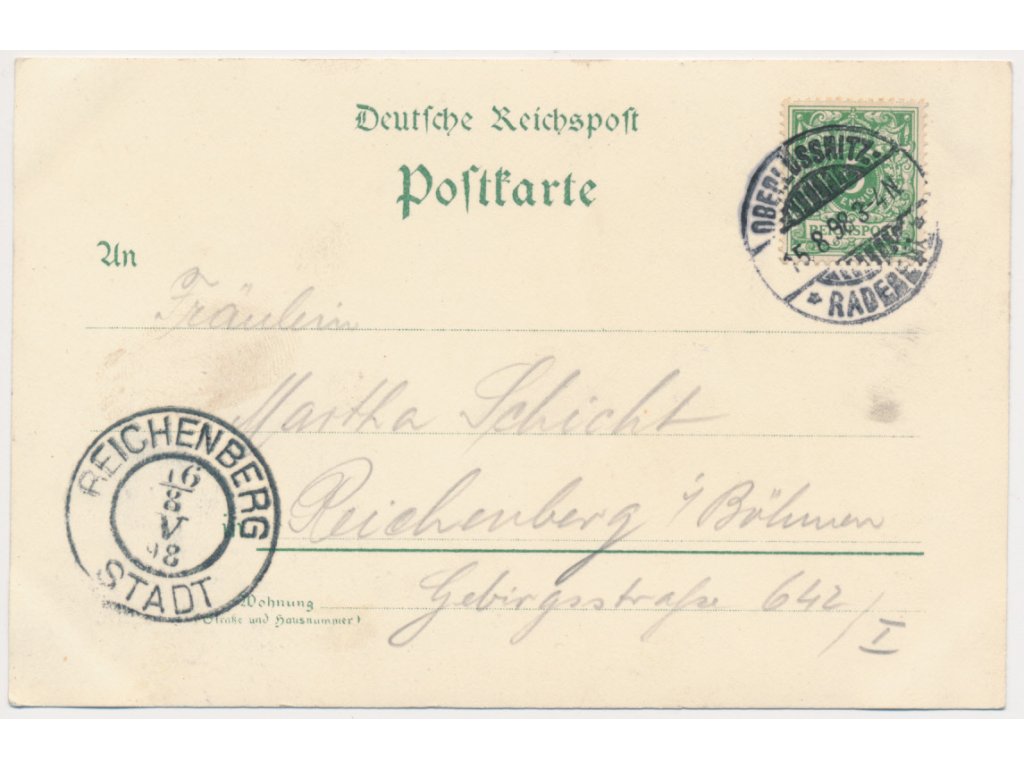 Deutsche Reichspost
Postkarte
OBERLÖSSNITZ-
15.8.98.3-4N.
* RADEBEUL *
REICHSPOST
An
Fräulein
Martha Schicht
Reichenberg i/Böhmen
Gebirgsstraße 642/I
Wohnung
(Straße und Hausnummer)
REICHENBERG
16
8
V
98
STADT